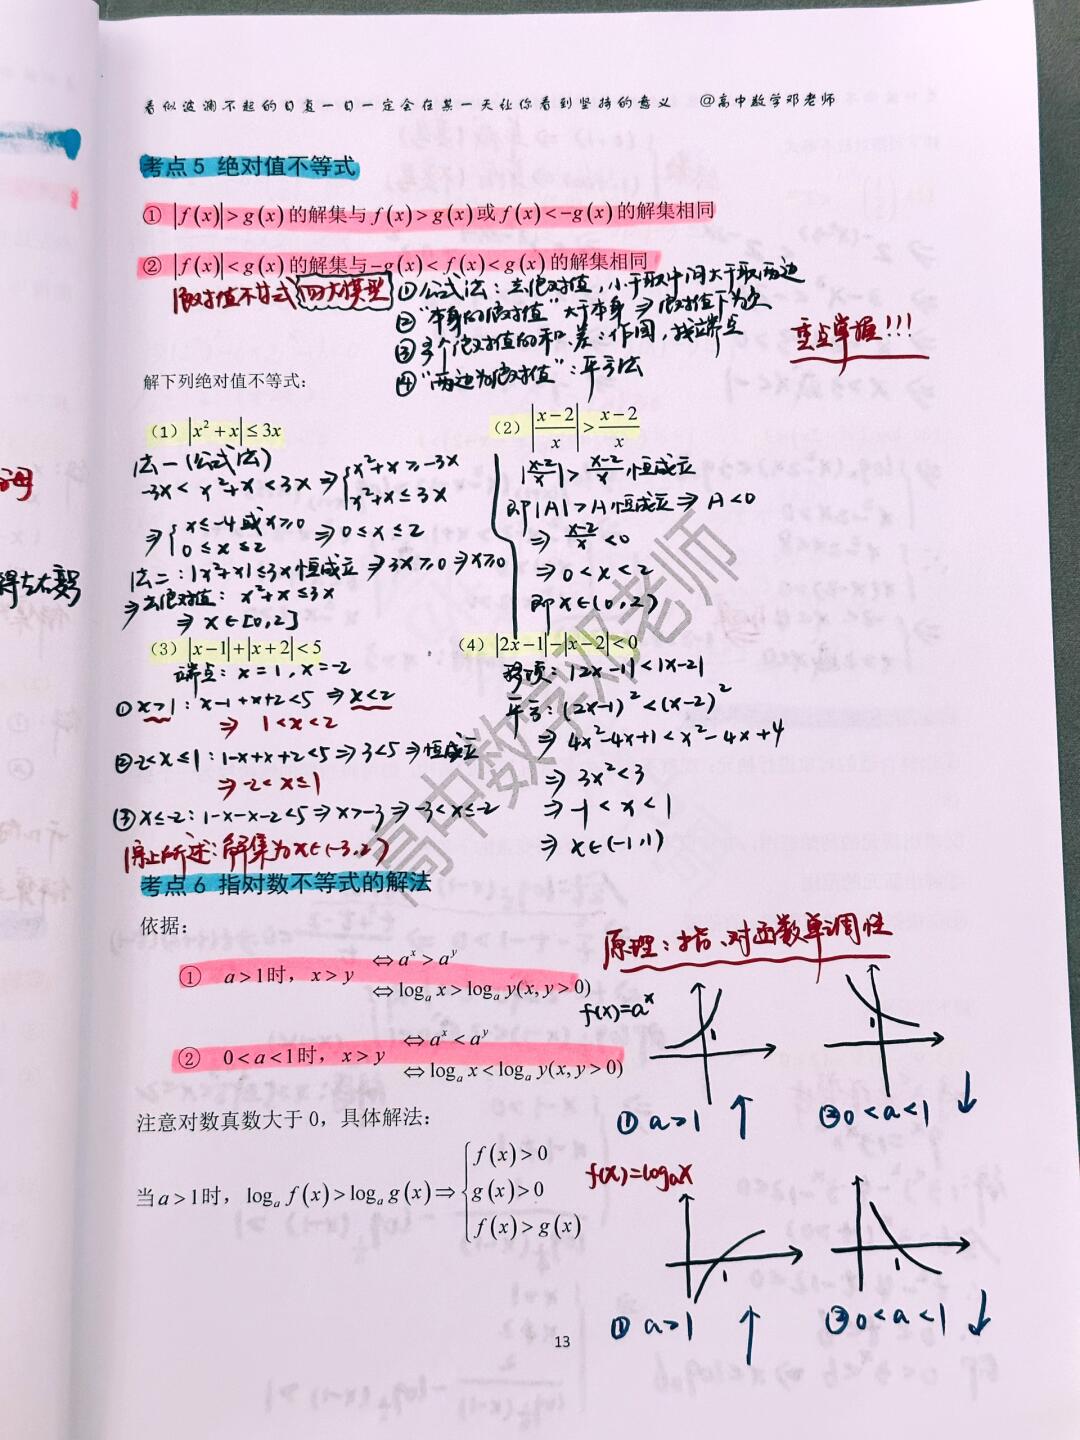 看似波澜不起的日复一日一定会在某一天让你看到坚持的意义 @高中数学邓老师
考点5 绝对值不等式
① |f(x)|>g(x)的解集与f(x)>g(x)或f(x)<-g(x)的解集相同
② |f(x)|<g(x)的解集与-g(x)<f(x)<g(x)的解集相同
绝对值不等式 四大模型
①公式法：去绝对值，小于取中间大于取两边
②"本身的绝对值"大于本身⇒绝对值下为负
③多个绝对值的和、差：作图，找端点
④"两边为绝对值"：平方法
重点掌握!!!
解下列绝对值不等式：
(1) |x²+x|≤3x
法一(公式法)
-3x<x²+x<3x⇒{x²+x≥-3x
x²+x≤3x
⇒{x≤-4或x≥0
0≤x≤2 ⇒0≤x≤2
法二：|x²+x|≤3x恒成立⇒3x≥0⇒x≥0
⇒去绝对值：x²+x≤3x
⇒x∈[0,2]
(2) |(x-2)/x|>(x-2)/x
|(x-2)/x|>(x-2)/x恒成立
即|A|>A恒成立⇒A<0
⇒(x-2)/x<0
⇒0<x<2
即x∈(0,2)
(3) |x-1|+|x+2|<5
端点：x=1,x=-2
①x>1：x-1+x+2<5⇒x<2
⇒1<x<2
②-2<x≤1：1-x+x+2<5⇒3<5⇒恒成立
⇒-2<x≤1
③x≤-2：1-x-x-2<5⇒x>-3⇒-3<x≤-2
综上所述：解集为x∈(-3,2)
(4) |2x-1|-|x-2|<0
移项：|2x-1|<|x-2|
平方：(2x-1)²<(x-2)²
⇒4x²-4x+1<x²-4x+4
⇒3x²<3
⇒-1<x<1
⇒x∈(-1,1)
高中数学邓老师
考点6 指对数不等式的解法
依据：
原理：指、对函数单调性
① a>1时，x>y ⇔aˣ>aʸ
⇔logₐx>logₐy(x,y>0)
② 0<a<1时，x>y ⇔aˣ<aʸ
⇔logₐx<logₐy(x,y>0)
f(x)=aˣ
1
1
①a>1 ↑
②0<a<1 ↓
注意对数真数大于0，具体解法：
当a>1时，logₐf(x)>logₐg(x)⇒{f(x)>0
g(x)>0
f(x)>g(x)
f(x)=logₐx
1
1
①a>1 ↑
②0<a<1 ↓
13